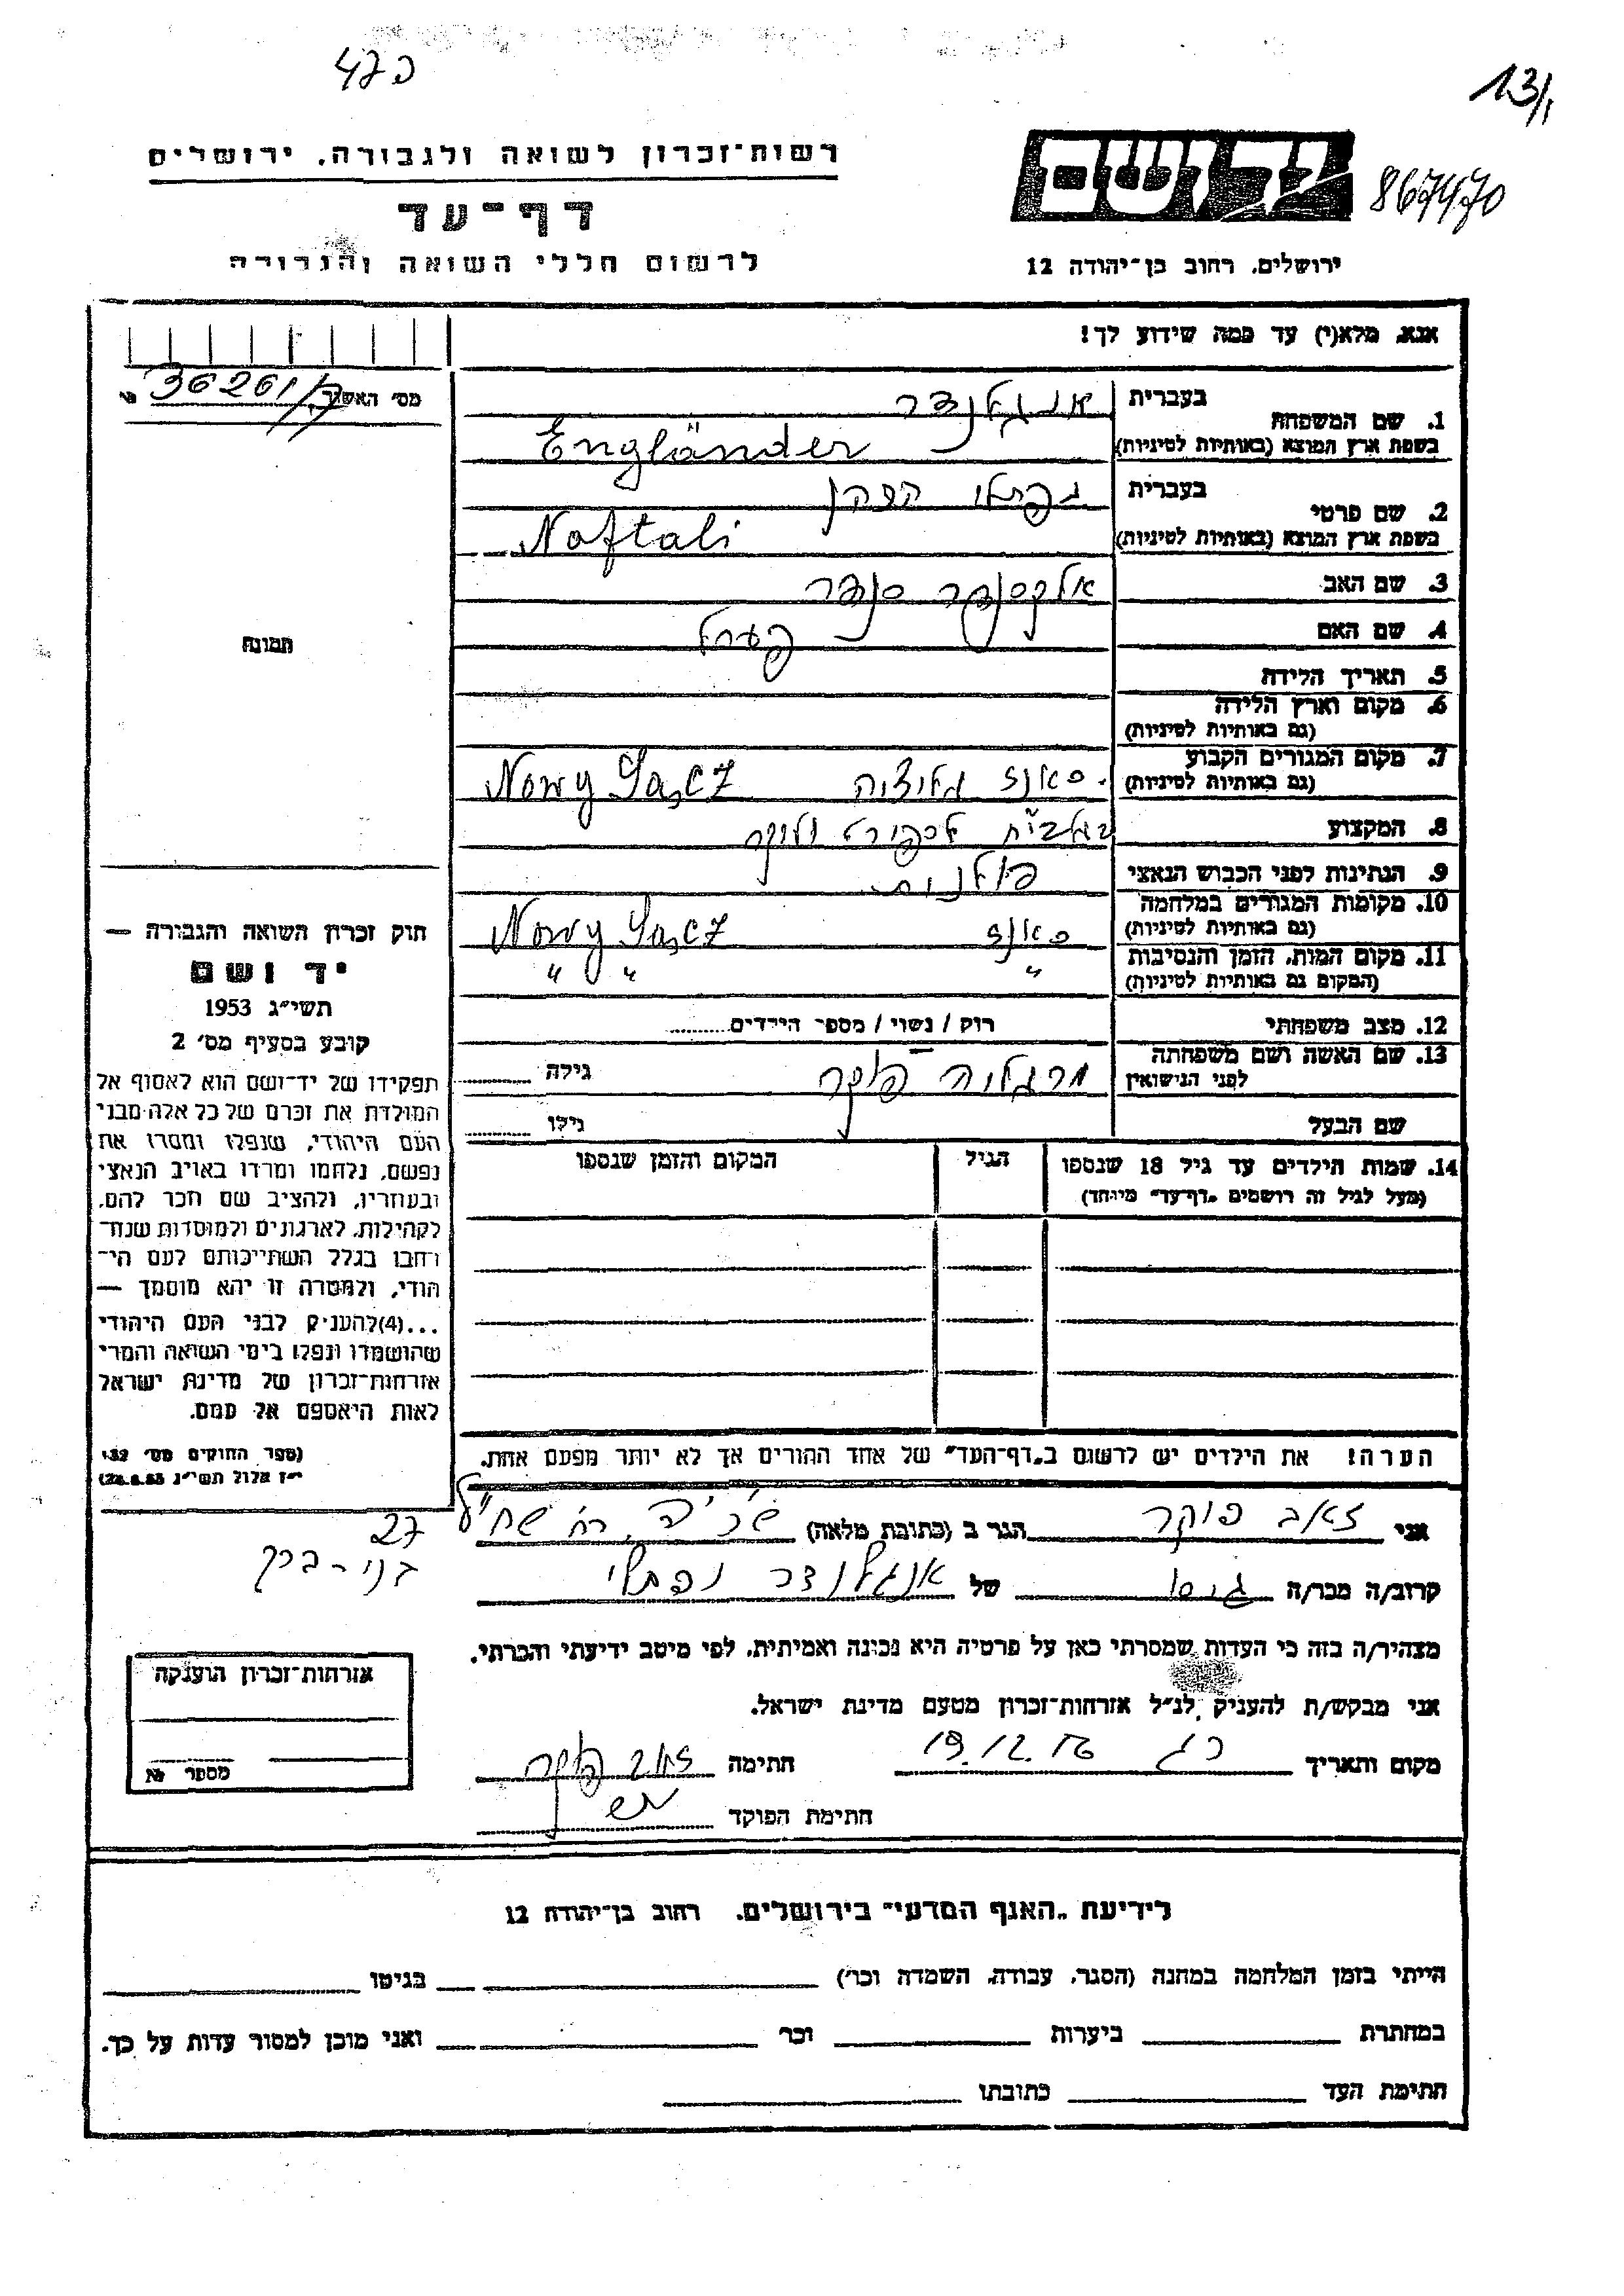 472
13/1
רשות־זכרון לשואה ולגבורה, ירושלים
יד ושם
867470
דף־עד
לרשום חללי השואה והגבורה
ירושלים, רחוב בן־יהודה 12
אנא, מלא(י) עד כמה שידוע לך!
מס׳ האשור
36261/7
1. שם המשפחה
בעברית
אנגלנדר
בשפת ארץ המוצא (באותיות לטיניות)
Engländer
2. שם פרטי
בעברית
נפתלי הצקן
בשפת ארץ המוצא (באותיות לטיניות)
Naftali
3. שם האב
אלכסנדר סנדר
4. שם האם
פערל
5. תאריך הלידה
6. מקום וארץ הלידה
(גם באותיות לטיניות)
7. מקום המגורים הקבוע
(גם באותיות לטיניות)
סאנז גליציה Nowy Sącz
8. המקצוע
9. הנתינות לפני הכבוש הנאצי
פולנית
10. מקומות המגורים במלחמה
(גם באותיות לטיניות)
סאנז Nowy Sącz
11. מקום המות, הזמן והנסיבות
(המקום גם באותיות לטיניות)
" " "
12. מצב משפחתי
רוק / נשוי / מספר הילדים
13. שם האשה ושם משפחתה
לפני הנישואין
מרגליה פוקר
גילה
שם הבעל
גילו
14. שמות הילדים עד גיל 18 שנספו
(מעל לגיל זה רושמים „דף־עד״ מיוחד)
הגיל
המקום והזמן שנספו
הערה! את הילדים יש לרשום ב„דף־העד״ של אחד ההורים אך לא יותר מפעם אחת.
תמונה
חוק זכרון השואה והגבורה —
יד ושם
תשי״ג 1953
קובע בסעיף מס׳ 2
תפקידו של יד־ושם הוא לאסוף אל
המולדת את זכרם של כל אלה מבני
העם היהודי, שנפלו ומסרו את
נפשם, נלחמו ומרדו באויב הנאצי
ובעוזריו, ולהציב שם וזכר להם,
לקהילות, לארגונים ולמוסדות שנח־
רבו בגלל השתייכותם לעם הי־
הודי, ולמטרה זו יהא מוסמך —
...(4)להעניק לבני העם היהודי
שהושמדו ונפלו בימי השואה והמרי
אזרחות־זכרון של מדינת ישראל
לאות היאספם אל עמם.
(ספר החוקים מס׳ 132,
י״ז אלול תשי״ג 28.8.53)
אני זאב פוקר הגר ב (כתובת מלאה) שכ׳ ה, רח׳ שח״ל
27
בני־ברק
קרוב/ה מכר/ה גיסו של אנגלנדר נפתלי
מצהיר/ה בזה כי העדות שמסרתי כאן על פרטיה היא נכונה ואמיתית, לפי מיטב ידיעתי והכרתי.
אני מבקש/ת להעניק לנ״ל אזרחות־זכרון מטעם מדינת ישראל.
מקום ותאריך
חתימה זאב פוקר
חתימת הפוקד
אזרחות־זכרון הוענקה
מספר №
לידיעת „האגף המדעי״ בירושלים, רחוב בן־יהודה 12
הייתי בזמן המלחמה במחנה (הסגר, עבודה, השמדה וכו׳) בגיטו
במחתרת ביערות וכו׳ ואני מוכן למסור עדות על כך.
חתימת העד כתובתו